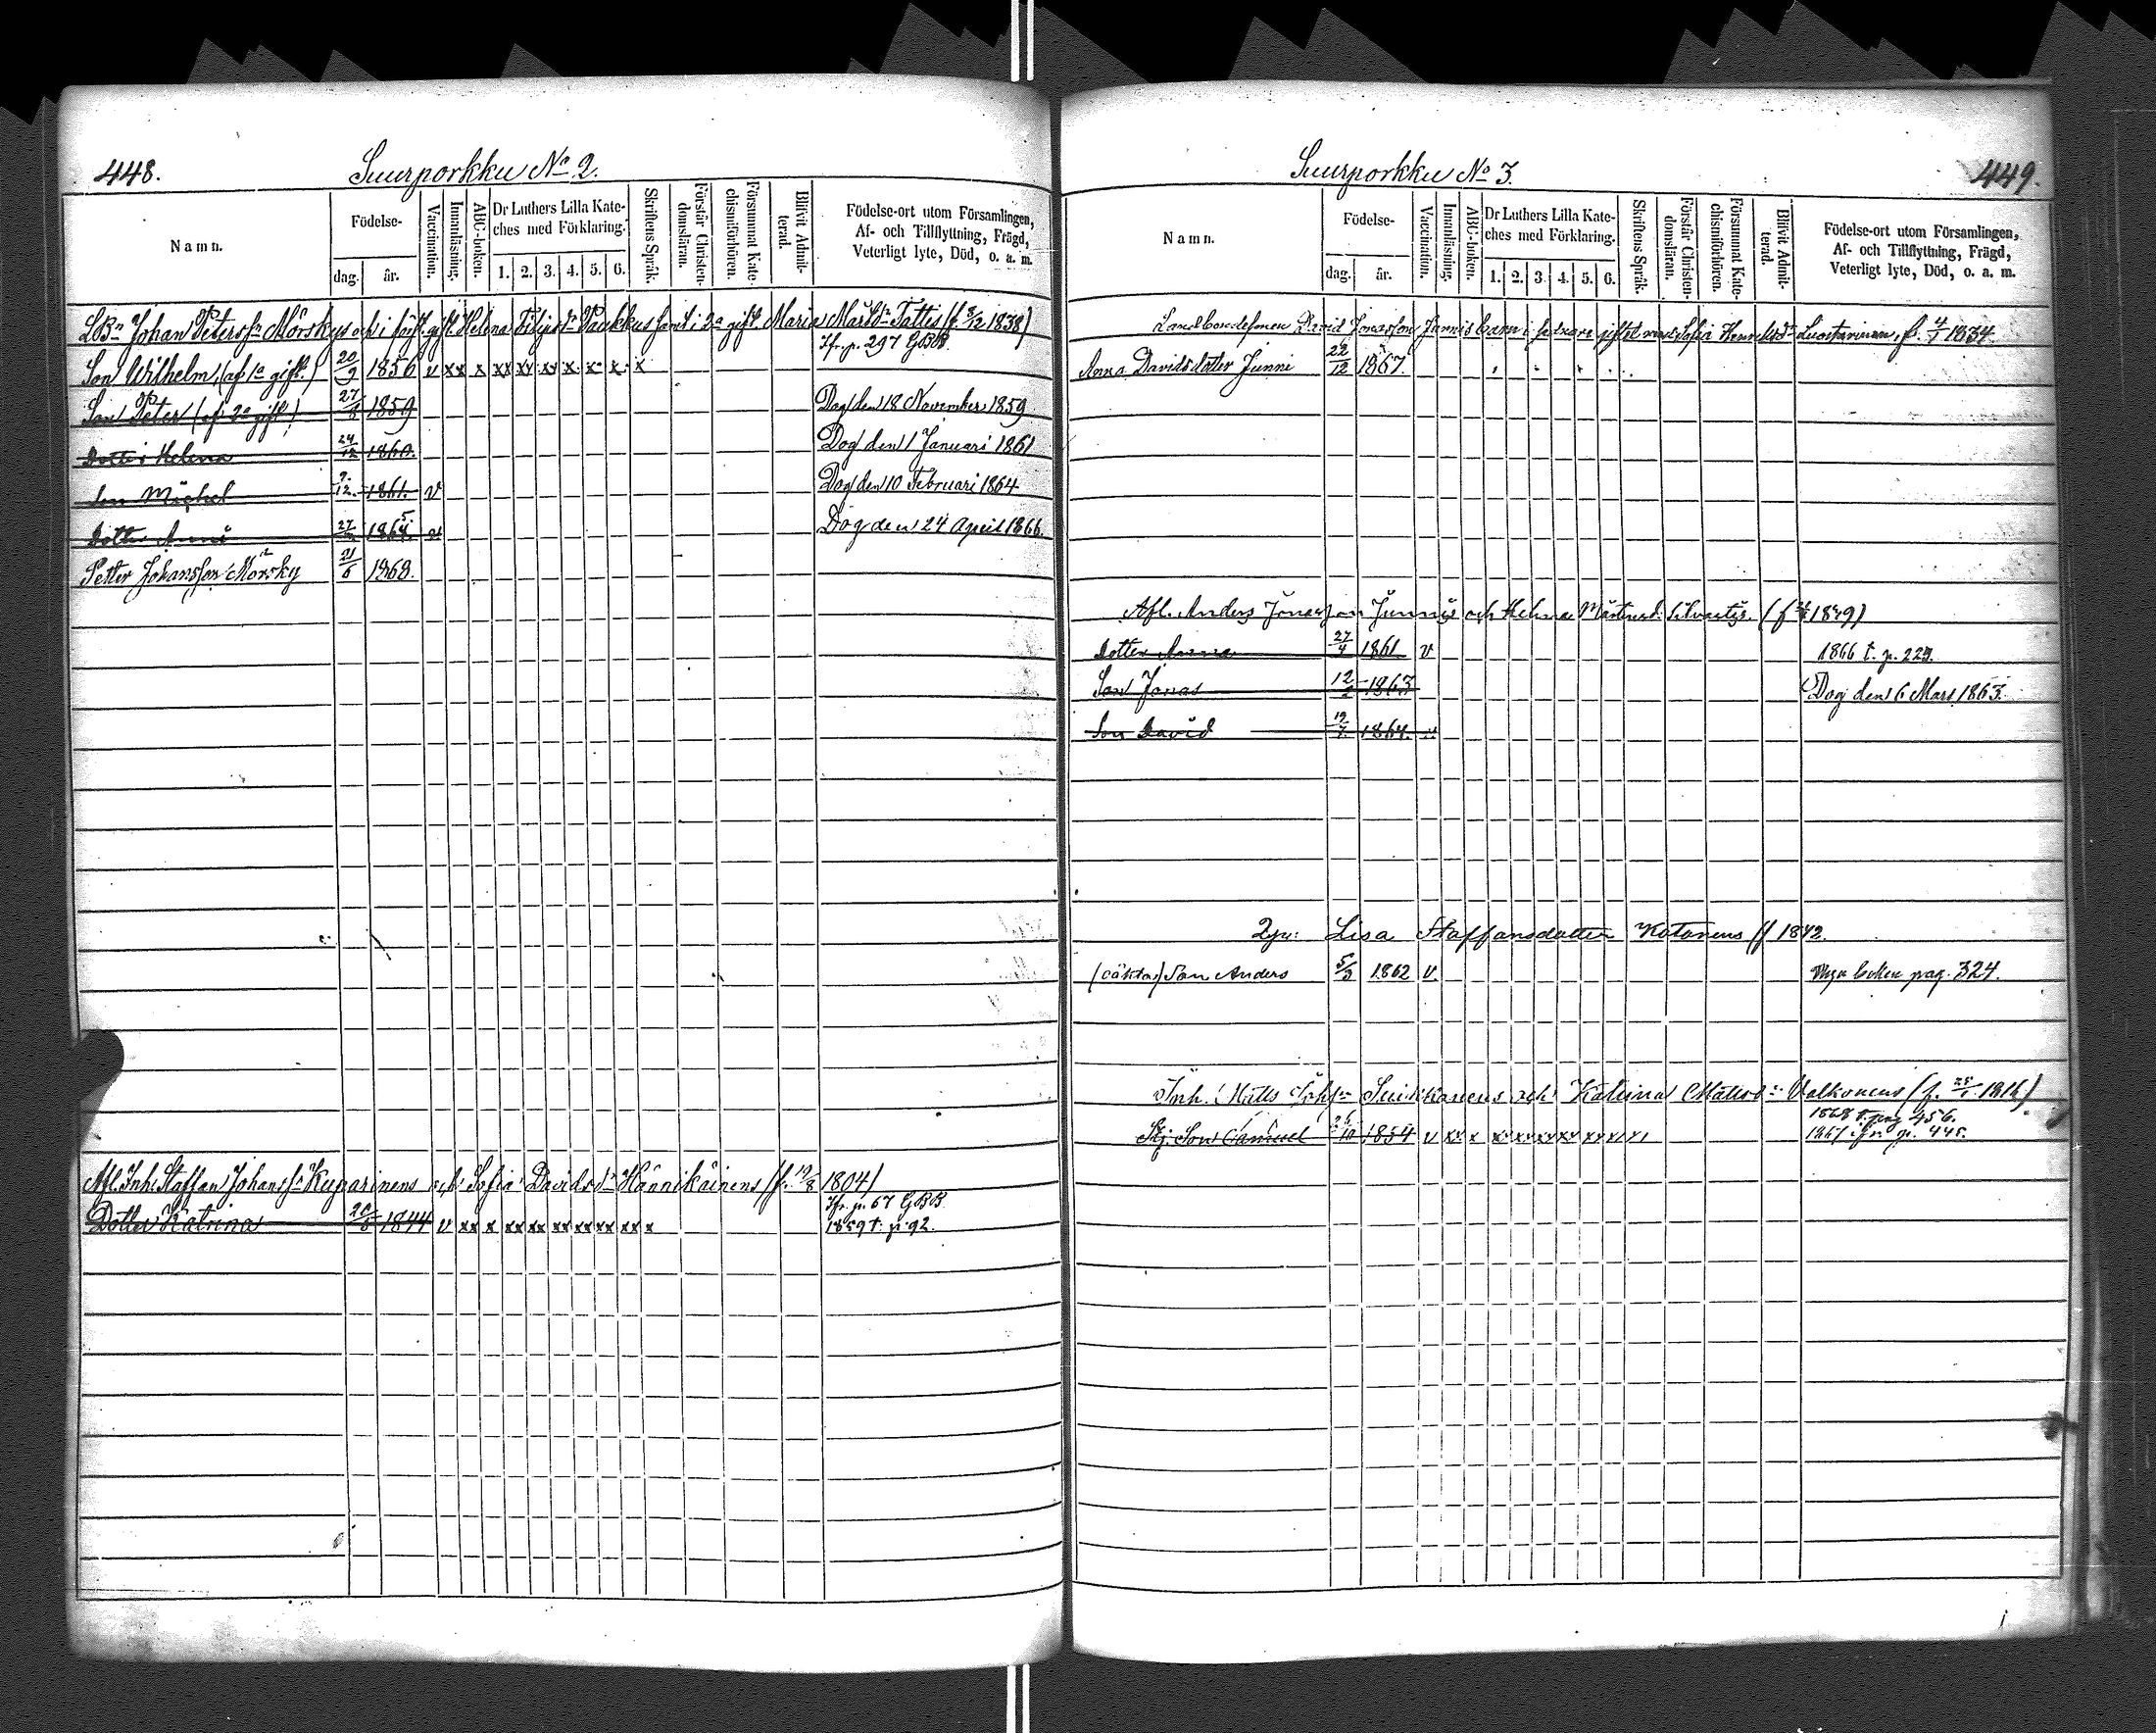 448.
Suurporkku No 2.
Namn.
Födelse-
dag.
år.
Vaccination.
Innanläsning.
ABC-boken.
Dr Luthers Lilla Kate-
ches med Förklaring.
1. 2. 3. 4. 5. 6.
Skriftens Språk.
Förstår Christen-
domsläran.
Försummat Kate-
chismiförhören.
Blifvit Admit-
terad.
Födelse-ort utom Församlingen,
Af- och Tillflyttning, Frägd,
Veterligt lyte, Död, o. a. m.
LBn Johan Petersn Mörsky och i förft. gift. Helena Filipsdr Paukku samt i 2a gift. Maria Märtdr Tattis (f. 8/12 1838)
Jfr. p. 297 GBB.
Son Wilhelm, (af 1a gift.) 20/9 1856 v xx x xx xx xx x x x x
Son Peter (af 2a gift.) 27/8 1859 Dog den 18 November 1859
Dotter Helena 24/12 1860. Dog den 1 Januari 1861
Son Michel 9/12 1861. v Dog den 10 Februari 1864
Dotter Anna 27 1865 v Dog den 24 April 1866.
Petter Johansson Mörsky 21/6 1868.
Afl. Inh. Staffan Johanss. Kuparinens och Sofia Davidsdr Hännikäinens (f. 19/8 1804)
Jfr. p. 67 GBB.
Dotter Katrina 20 1844 v xx x xx xx xx xx xx xx x 1859 t. p. 92.
449.
Suurporkku No 3.
Namn.
Födelse-
dag.
år.
Vaccination.
Innanläsning.
ABC-boken.
Dr Luthers Lilla Kate-
ches med Förklaring.
1. 2. 3. 4. 5. 6.
Skriftens Språk.
Förstår Christen-
domsläran.
Försummat Kate-
chismiförhören.
Blifvit Admit-
terad.
Födelse-ort utom Församlingen,
Af- och Tillflyttning, Frägd,
Veterligt lyte, Död, o. a. m.
Landbondesonen David Jonasson Junnis barn i sednare giftet med Sofia Henriksdr Luostarinen, f. 4/7 1834.
Anna Davidsdotter Junni 22/12 1867.
Afl. Anders Jonasson Junnis och Helena Mårtensd. (f 1849)
Dotter Anna 27/4 1861 v 1866 t. p. 229.
Son Jonas 12/2 1863 Dog den 6 Mars 1863.
Son David 19/7 1864. v
Lisa Staffansdotter Kotonens f 1842.
(oäkta) Son Anders 5/3 1862 v. Nya boken pag. 324.
Inh. Matts Johsn Suikkanens och Katrina Mattsdr Valkonens
1868 t. pag 456.
Son Samuel 26/10 1854 v xx x xx xx xx xx xx xx 1867 fr. p. 445.